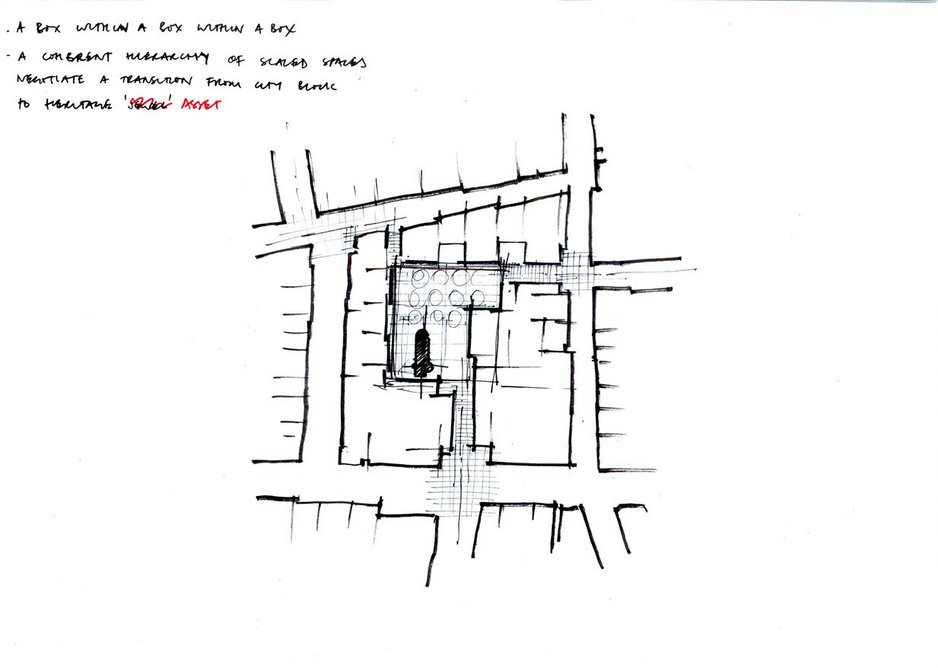 . A BOX WITHIN A BOX WITHIN A BOX
- A COHERENT HIERARCHY OF SCALED SPACES
NEGOTIATE A TRANSITION FROM CITY BLOCK
TO HERITAGE 'JEWEL' ASSET